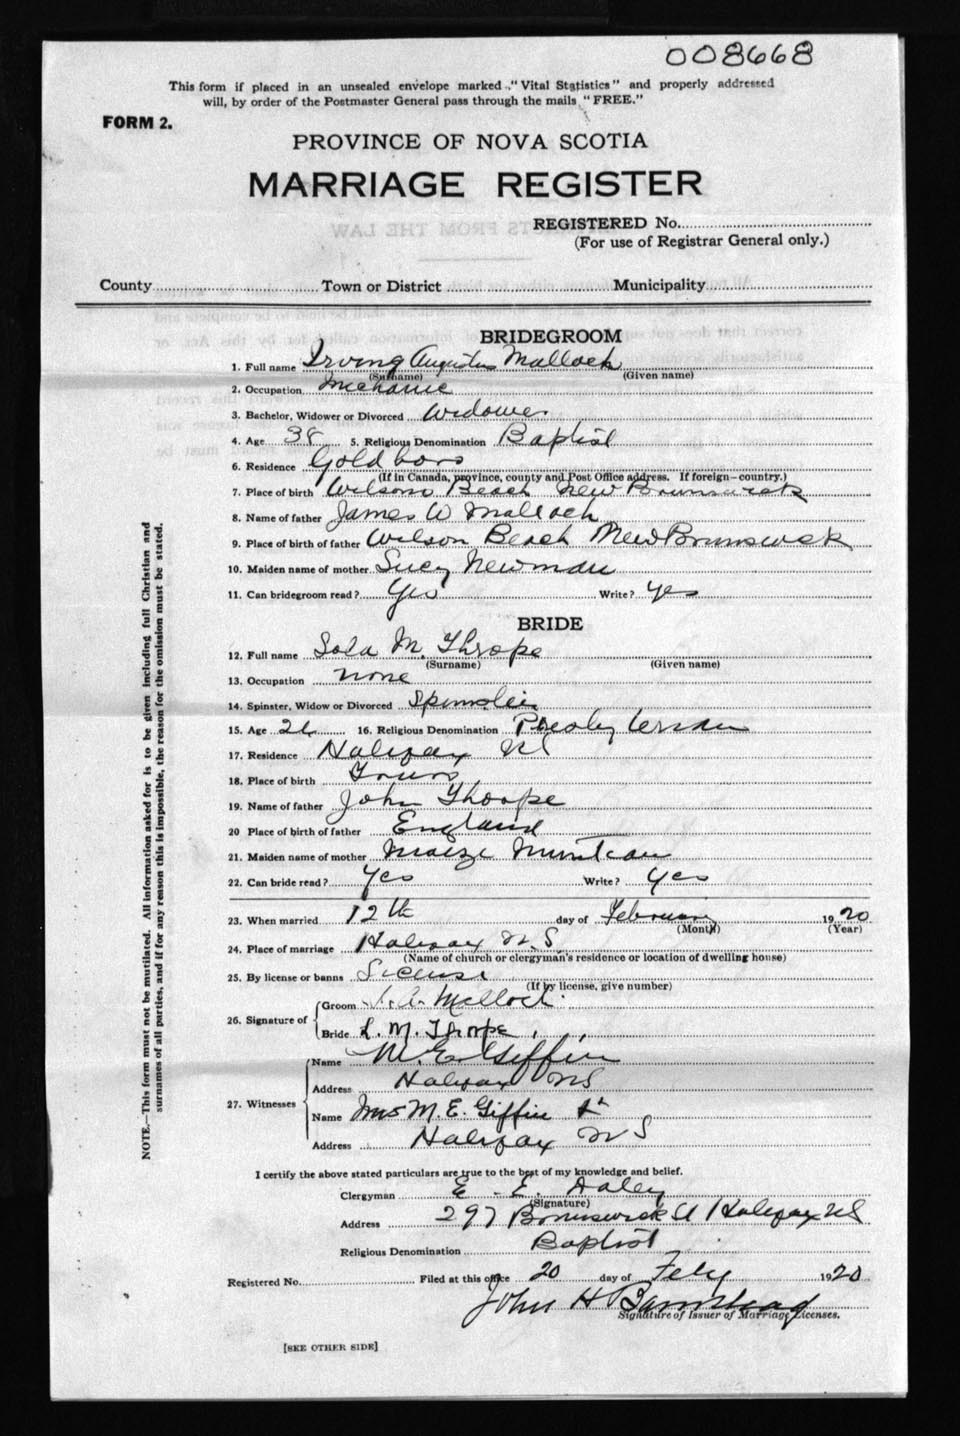 008668
This form if placed in an unsealed envelope marked "Vital Statistics" and properly addressed
will, by order of the Postmaster General pass through the mails "FREE."
FORM 2.
PROVINCE OF NOVA SCOTIA
MARRIAGE REGISTER
REGISTERED No.
(For use of Registrar General only.)
County Town or District Municipality
BRIDEGROOM
1. Full name Irving Augustus Malloch
(Surname) (Given name)
2. Occupation Mechanic
3. Bachelor, Widower or Divorced Widower
4. Age 38 5. Religious Denomination Baptist
6. Residence Goldboro
(If in Canada, province, county and Post Office address. If foreign—country.)
7. Place of birth Wilsons Beach New Brunswick
8. Name of father James W Malloch
9. Place of birth of father Wilson Beach New Brunswick
10. Maiden name of mother Lucy Newman
11. Can bridegroom read? Yes Write? Yes
BRIDE
12. Full name M. Thrope
(Surname) (Given name)
13. Occupation none
14. Spinster, Widow or Divorced Spinster
15. Age 26 16. Religious Denomination Presbyterian
17. Residence Halifax NS
18. Place of birth Truro
19. Name of father John Thorpe
20 Place of birth of father England
21. Maiden name of mother
22. Can bride read? Yes Write? Yes
23. When married 12th day of February 1920
(Month) (Year)
24. Place of marriage Halifax N.S
(Name of church or clergyman's residence or location of dwelling house)
25. By license or banns License
(If by license, give number)
26. Signature of Groom I. A. Malloch
Bride L. M. Thorpe
27. Witnesses Name M. E. Giffin
Address Halifax NS
Name Mrs M. E. Giffin
Address Halifax N S
I certify the above stated particulars are true to the best of my knowledge and belief.
Clergyman E. E. Daley
(Signature)
Address 297 Brunswick St Halifax NS
Religious Denomination Baptist
Registered No. Filed at this office 20 day of Feby 1920
John H Barnstead
Signature of Issuer of Marriage Licenses.
[SEE OTHER SIDE]
NOTE.—This form must not be mutilated. All information asked for is to be given including full Christian and
surnames of all parties, and if for any reason this is impossible, the reason for the omission must be stated.